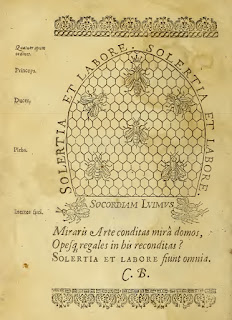 Quatuor apum
ordines.
Princeps.
Duces.
Plebs.
Inertes fuci.
SOLERTIA ET LABORE. SOLERTIA ET LABORE
SOCORDIAM LVIMVS
Miraris Arte conditas mirâ domos,
Opesq; regales in his reconditas?
SOLERTIA ET LABORE fiunt omnia.
C. B.